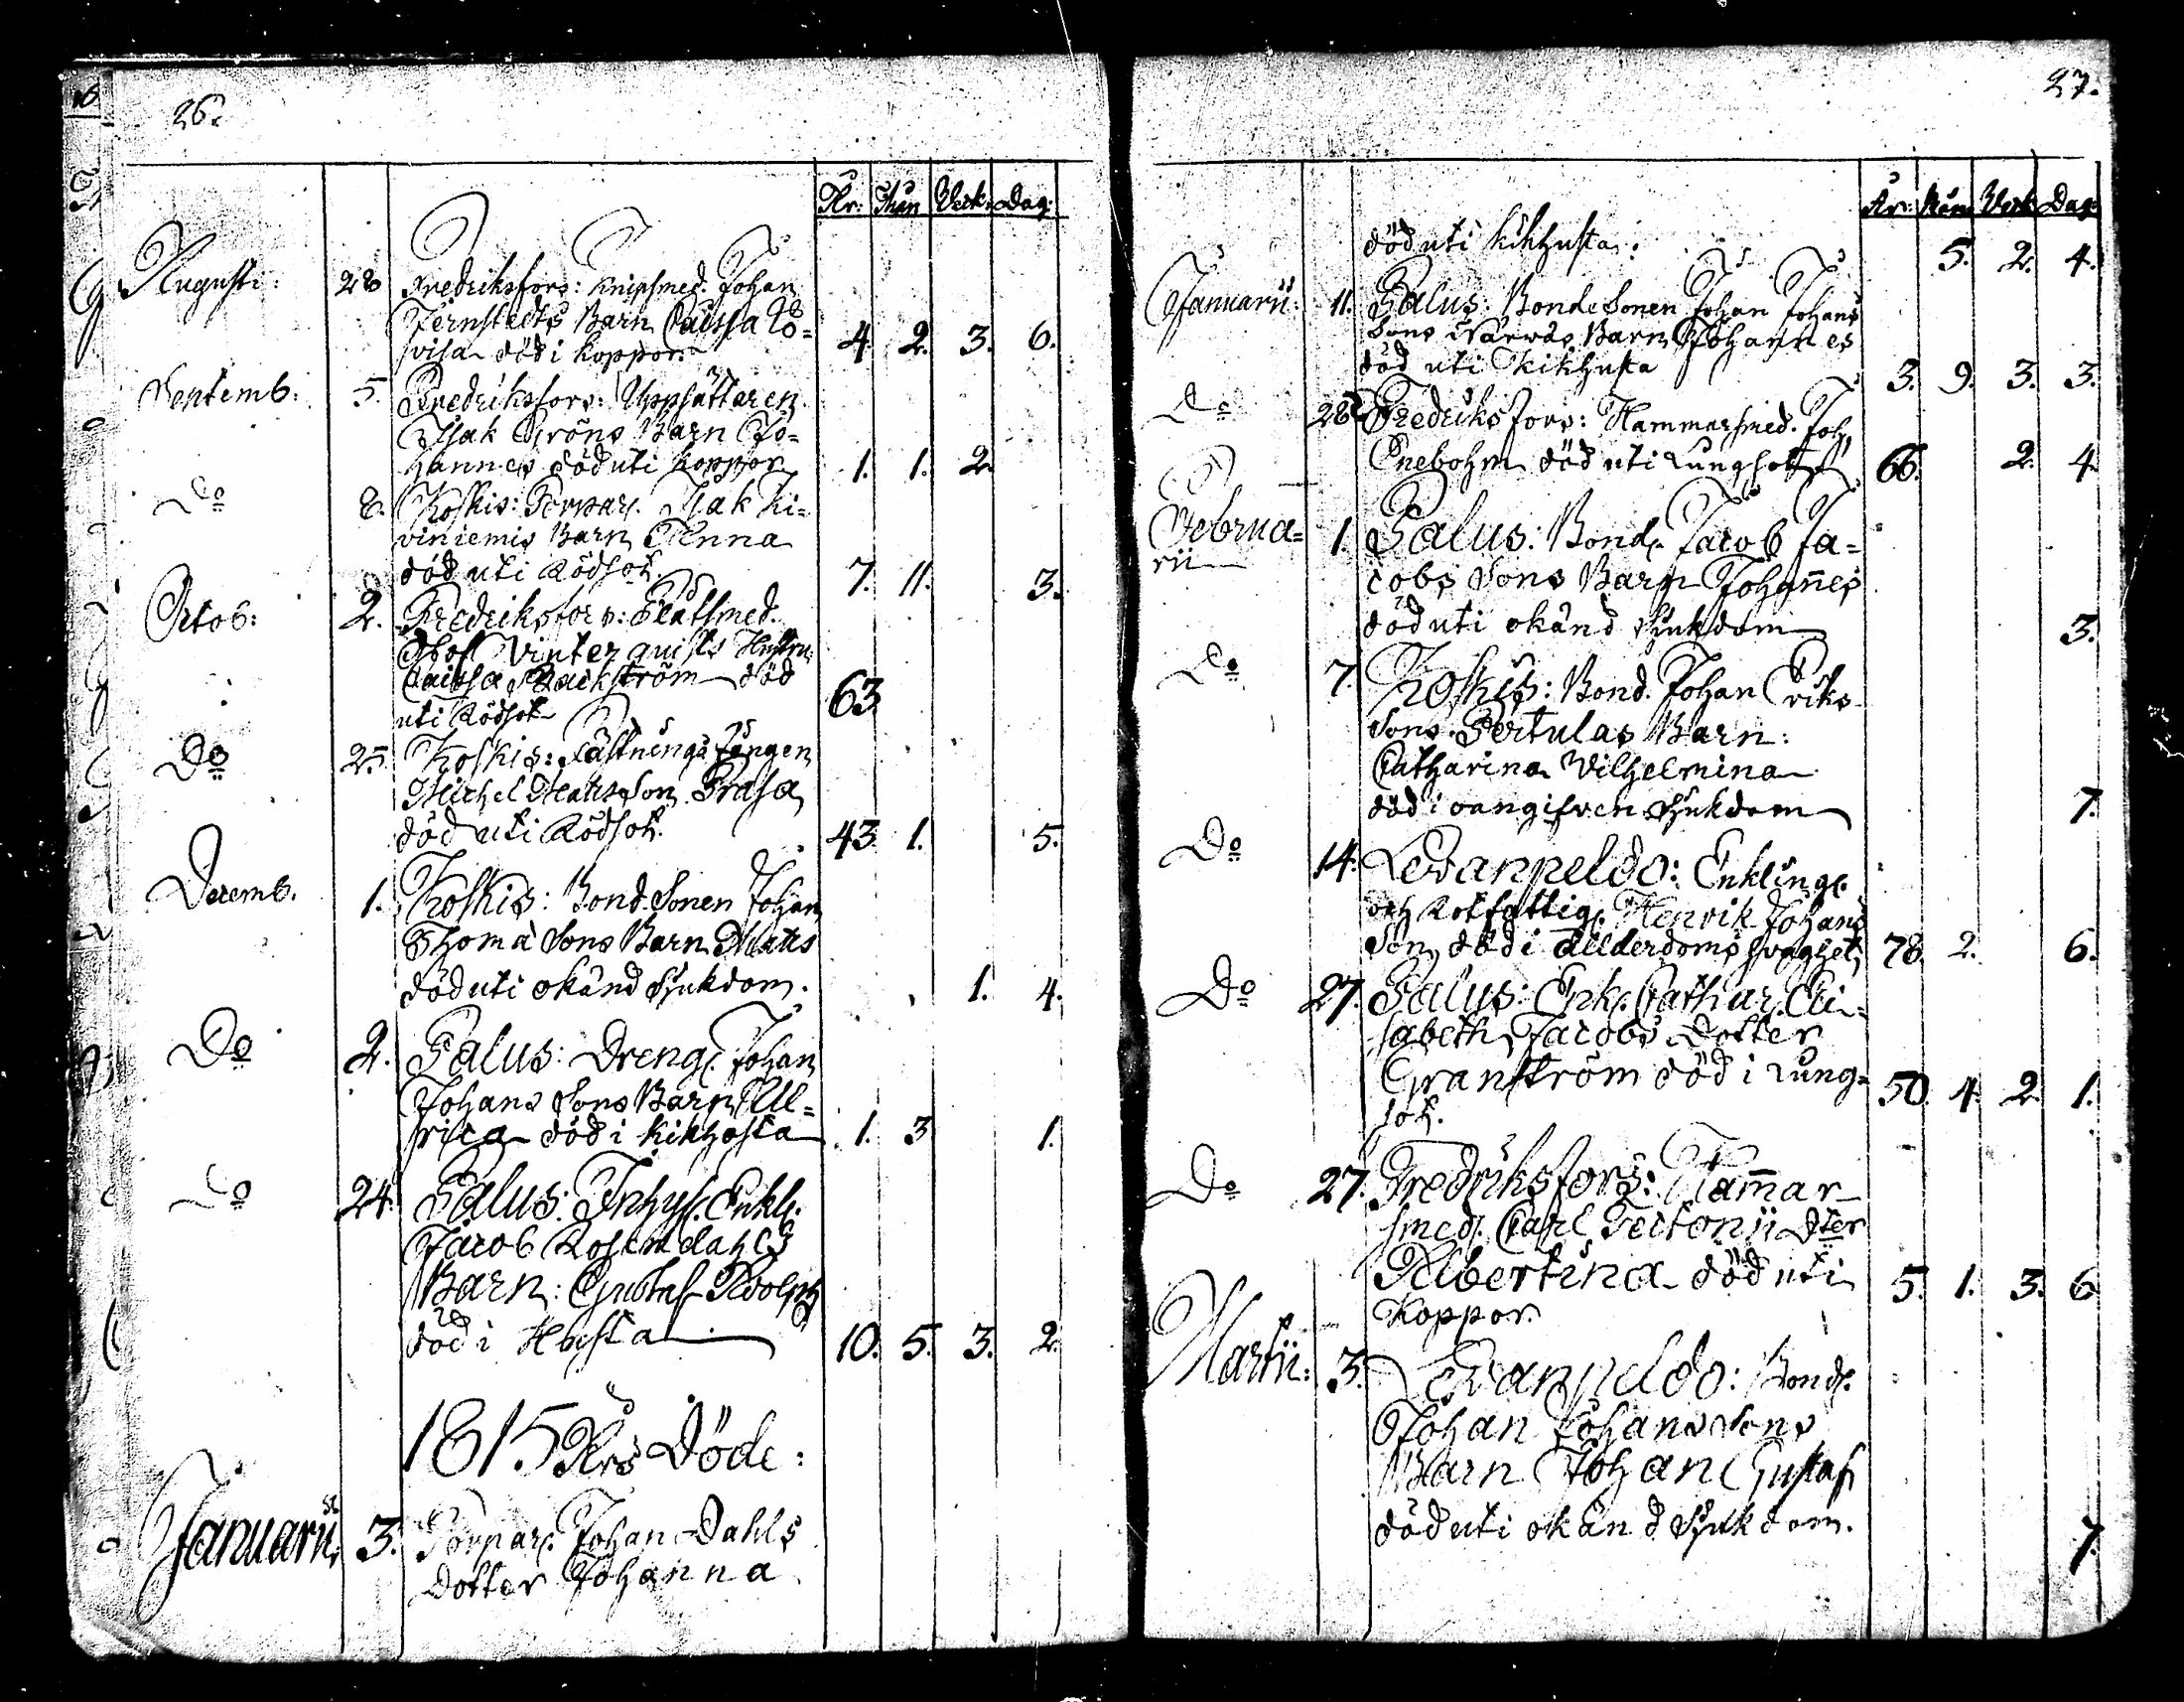 26.
År: Mån Veck: Dag:
Augusti: 28 Fredriksfors: Knipsmed. Johan
Jernstedts Barn Caissa Lo-
visa död i koppor. 4. 2. 3. 6.
Septemb: 5. Fredriksfors: Uppsättaren
Isak Gröns Barn Jo-
hannes död uti koppor 1. 1. 2.
Do 8. Koskis: Torpar. Isak Ki-
viniemis Barn Anna
död uti Rödsot. 7. 11. 3.
Octob: 2. Fredriksfors: Smed.
Olof Vinterquists Hustru
Caissa Backström död
uti Rödsot 63.
Do 25 Koskis: Fästnings fången
Michel Matsson Prasa
död uti Rödsot. 43. 1. 5.
Decemb. 1. Koskis: Bond Sonen Johan
Thoma Sons Barn Matts
död uti okänd Sjukdom. 1. 4.
Do 2. Salus: Dreng. Johan
Johans Sons Barn Ul-
rica död i kikhosta 1. 3 1.
Do 24. Salus: Inhys. Enkl.
Jacob Rosendahls
Barn: Gustaf Adolph
död i Hosta 10. 5. 3. 2.
1815 Års Döde:
Januarii 3. Torpar. Johan Dahls
Dotter Johanna
27.
År: Mån Veck: Dag:
död uti kikhusta: 5. 2. 4.
Januarii: 11. Salus: Bonde Sonen Johan Johans
Sons Närwäs Barn Johannes
död uti kikhusta 3. 9. 3. 3.
Do 28 Fredriksfors: Hammarsmed. Joh
Enebohm död uti Lungsot 66. 2. 4.
Februa= 1. Salus: Bond. Jacob Ja=
rii cobs Sons Barn Johan̄es
död uti okänd Sjukdom 3.
Do 7. Koskis: Bond. Johan Eriks
Sons Pertulas Barn:
Catharina Wilhelmina
död i oangifven Sjukdom 7.
Do 14. Levanpeldo: Enkling.
och Rotfattig. Henrik Johans
Son död i ållderdoms svaghet 78. 2. 6.
Do 27. Salus: Enk. Cathar. Eli-
sabeth Jacobs Dotter
Granström död i Lung= 50. 4. 2. 1.
sot.
Do 27. Fredriksfors: Ham̄ar
smed. Carl Teitonii Dter
Albertina död uti 5. 1. 3. 6
koppor.
Martii: 3. Levanpeldo: Bond.
Johan Johans Sons
Barn Johan Gustaf
död uti okänd Sjukdom. 7.